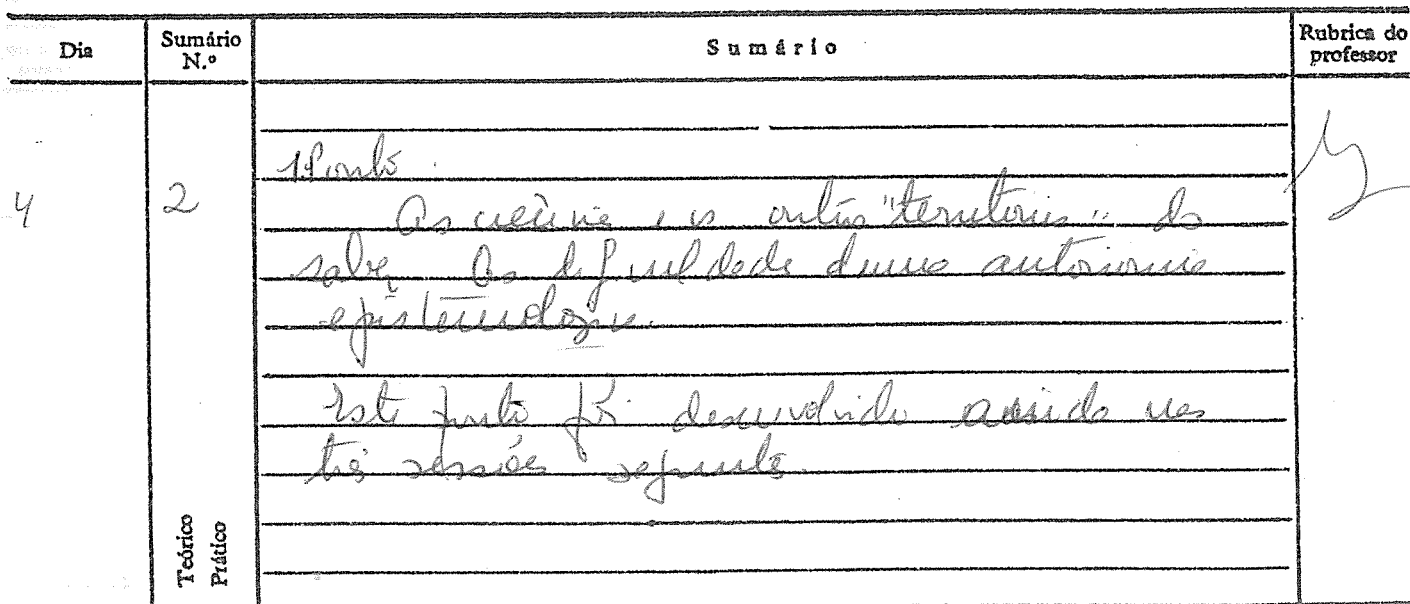 Dia
Sumário N.º
Sumário
Rubrica do professor
4
2
1º Ponto.
As ciências e os outros "territórios" do
saber. As dificuldades duma autonomia
epistemológica.
Este ponto foi desenvolvido ainda nas
três sessões seguintes.
Teórico
Prático